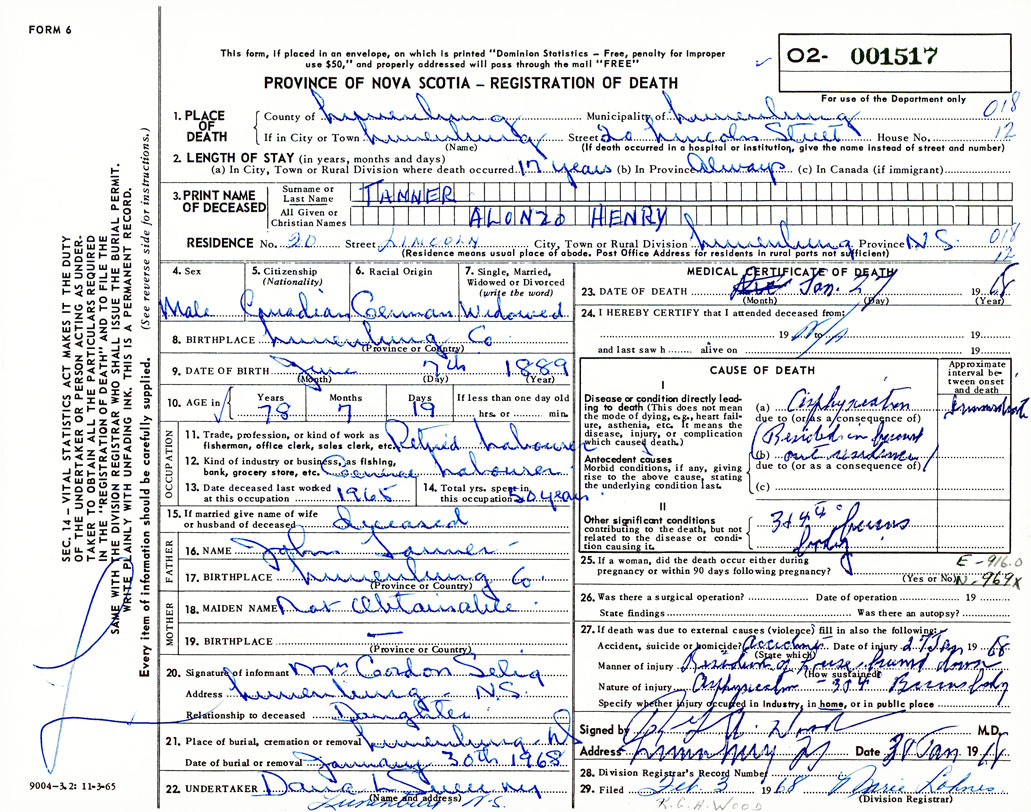 FORM 6
This form, if placed in an envelope, on which is printed "Dominion Statistics – Free, penalty for improper
use $50," and properly addressed will pass through the mail "FREE"
PROVINCE OF NOVA SCOTIA – REGISTRATION OF DEATH
O2- 001517
For use of the Department only
1. PLACE OF DEATH County of Lunenburg Municipality of Lunenburg 018
If in City or Town Lunenburg Street 20 Lincoln Street House No. 12
(Name) (If death occurred in a hospital or institution, give the name instead of street and number)
2. LENGTH OF STAY (in years, months and days)
(a) In City, Town or Rural Division where death occurred 17 years (b) In Province Always (c) In Canada (if immigrant)
3. PRINT NAME OF DECEASED
Surname or Last Name TANNER
All Given or Christian Names ALONZO HENRY
RESIDENCE No. 20 Street LINCOLN City, Town or Rural Division Lunenburg Province N.S. 018
(Residence means usual place of abode. Post Office Address for residents in rural parts not sufficient) 12
4. Sex Male
5. Citizenship (Nationality) Canadian
6. Racial Origin German
7. Single, Married, Widowed or Divorced (write the word) Widowed
8. BIRTHPLACE Lunenburg Co
(Province or Country)
9. DATE OF BIRTH June 7th 1889
(Month) (Day) (Year)
10. AGE in Years 78 Months 7 Days 19 If less than one day old hrs. or min.
OCCUPATION
11. Trade, profession, or kind of work as fisherman, office clerk, sales clerk, etc. Retired Labourer
12. Kind of industry or business, as fishing, bank, grocery store, etc. General Labourer
13. Date deceased last worked at this occupation 1965
14. Total yrs. spent in this occupation 50 years
15. If married give name of wife or husband of deceased Deceased
FATHER
16. NAME John Tanner
17. BIRTHPLACE Lunenburg Co.
(Province or Country)
MOTHER
18. MAIDEN NAME Not Obtainable
19. BIRTHPLACE —
(Province or Country)
20. Signature of informant Mrs Gordon Selig
Address Lunenburg N.S.
Relationship to deceased Daughter
21. Place of burial, cremation or removal Lunenburg NS
Date of burial or removal January 30th 1968
22. UNDERTAKER
(Name and address) Lunenburg N.S.
MEDICAL CERTIFICATE OF DEATH
23. DATE OF DEATH Jan. 27 1968
(Month) (Day) (Year)
24. I HEREBY CERTIFY that I attended deceased from:
19 N/A to 19
and last saw h alive on 19
CAUSE OF DEATH
Approximate interval between onset and death
I
Disease or condition directly leading to death (This does not mean the mode of dying, e.g., heart failure, asthenia, etc. It means the disease, injury, or complication which caused death.)
(a) Asphyxiation
due to (or as a consequence of)
Antecedent causes
Morbid conditions, if any, giving rise to the above cause, stating the underlying condition last.
(b)
due to (or as a consequence of)
(c)
II
Other significant conditions contributing to the death, but not related to the disease or condition causing it.
3 & 4th burns
body
25. If a woman, did the death occur either during pregnancy or within 90 days following pregnancy?
(Yes or No)
E-916.0
N-969X
26. Was there a surgical operation? Date of operation 19
State findings Was there an autopsy?
27. If death was due to external causes (violence) fill in also the following:
Accident, suicide or homicide? Accident Date of injury 27 Jan 1968
(State which)
Manner of injury Resident of house burned down
(How sustained)
Nature of injury Asphyxiation - 3 & 4 Burns body
Specify whether injury occupied in Industry, in home, or in public place
Signed by Wood M.D.
Address Date 30 Jan 19
28. Division Registrar's Record Number
29. Filed Feb. 3 1968
(Division Registrar)
K.G.H. WOOD
SEC. 14 – VITAL STATISTICS ACT MAKES IT THE DUTY
OF THE UNDERTAKER OR PERSON ACTING AS UNDER-
TAKER TO OBTAIN ALL THE PARTICULARS REQUIRED
IN THE "REGISTRATION OF DEATH" AND TO FILE THE
SAME WITH THE DIVISION REGISTRAR WHO SHALL ISSUE THE BURIAL PERMIT.
WRITE PLAINLY WITH UNFADING INK. THIS IS A PERMANENT RECORD.
Every item of information should be carefully supplied. (See reverse side for instructions.)
9004-3.2: 11-3-65